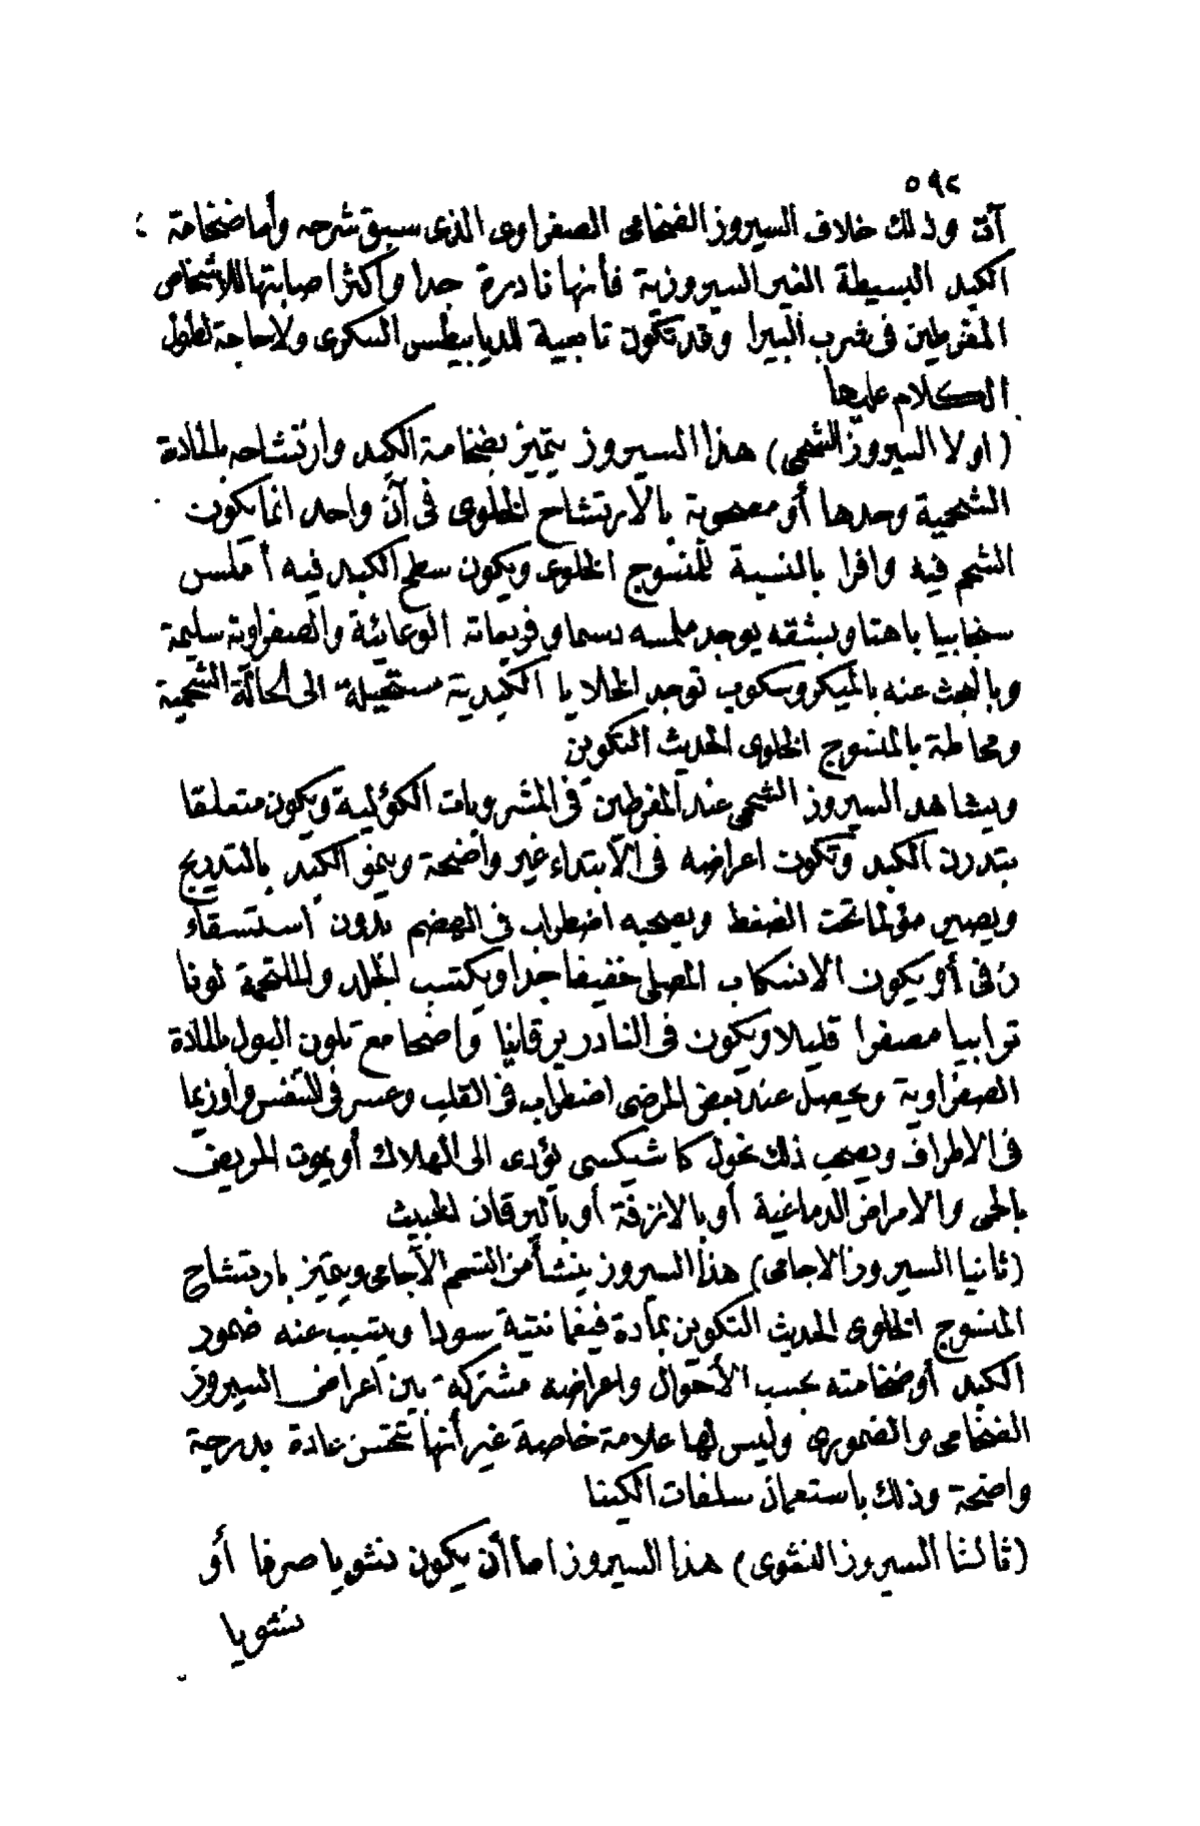 ٥٩٢
آت وذلك خلاف السيروز الضخامى الصفراوى الذى سبق شرحه وأما ضخامة
الكبد البسيطة الغير السيروزية فأنها نادرة جدا وأكثر اصابتها للاشخاص
المفرطين فى شرب البيرا وقد تكون تابعية للديابيطس السكرى ولا حاجة لطول
الكلام عليها
(اولا السيروز الشحمى) هذا السيروز يتميز بضخامة الكبد وارتشاحه بالمادة
الشحمية وحدها أو مصحوبة بالارتشاح الخلوى فى آن واحد انما يكون
الشحم فيه وافرا بالنسبة للمنسوج الخلوى ويكون سطح الكبد فيه أملس
سنجابيا باهتا وبشقه يوجد ملمسه دسما وفريعاته الوعائية والصفراوية سليمة
وبالبحث عنه بالميكروسكوب توجد الخلايا الكبدية مستحيلة الى الحالة الشحمية
ومحاطة بالمنسوج الخلوى الحديث التكوين
ويشاهد السيروز الشحمى عند المفرطين فى المشروبات الكؤلية ويكون متعلقا
بتدرن الكبد وتكون اعراضه فى الابتداء غير واضحة وينمو الكبد بالتدريج
ويصير مؤلما تحت الضغط ويصحبه اضطراب فى الهضم بدون استسقاء
زقى أو يكون الانسكاب المصلى خفيفا جدا ويكتسب الجلد والملتحمة لونا
ترابيا مصفرا قليلا ويكون فى النادر يرقانيا واضحا مع تلون البول بالمادة
الصفراوية ويحصل عند بعض المرضى اضطراب فى القلب وعسر فى التنفس وأوزيما
فى الاطراف ويصحب ذلك نحول كاشيكسى يؤدى الى الهلاك أو يموت المريض
بالحمى والامراض الدماغية أو بالانزفة أو باليرقان الخبيث
(ثانيا السيروز الاجامى) هذا السيروز ينشأ من التسمم الآجامى ويتميز بارتشاح
المنسوج الخلوى الحديث التكوين بمادة فيغمانتية سودا ويتسبب عنه ضمور
الكبد أو ضخامته بحسب الأحوال واعراضه مشتركة بين اعراض السيروز
الضخامى والضمورى وليس لها علامة خاصة غير أنها تتحسن عادة بدرجة
واضحة وذلك باستعمال سلفات الكينا
(ثالثا السيروز النشوى) هذا السيروز اما أن يكون نشويا صرفا أو
نشويا